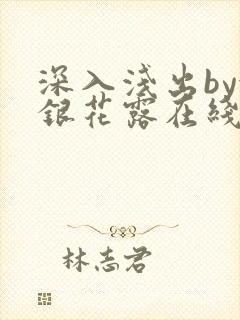 深入浅出by
銀花露在綫
林志君